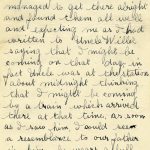 managed to get there alright
and found them all well
and expecting me as I had
written to Uncle Willie
saying that I might be
coming on that day in
fact Uncle was at the station
about midnight thinking
that I might be coming
by a train which arrived
there at that time, as soon
as I saw him I could see
a resemblance to our father